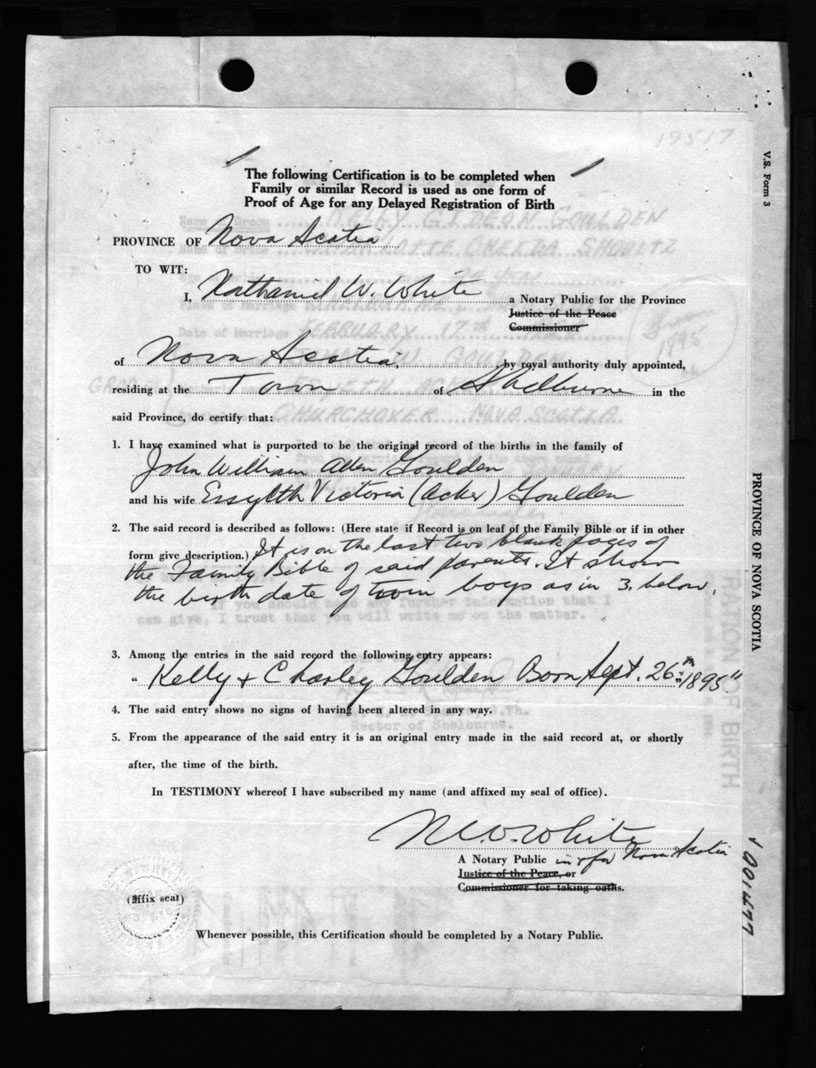 19517
V.S. Form 3
The following Certification is to be completed when
Family or similar Record is used as one form of
Proof of Age for any Delayed Registration of Birth
KELLY GIDEON GOULDEN
PROVINCE OF Nova Scotia
ONEIDA SHOULTZ
TO WIT:
I, Nathaniel W. White a Notary Public for the Province
Justice of the Peace
Commissioner
Date of Marriage FEBRUARY 17th
1895
of Nova Scotia. by royal authority duly appointed,
GOULDEN
residing at the Town of Shelburne in the
said Province, do certify that:
CHURCHOVER NOVA SCOTIA
1. I have examined what is purported to be the original record of the births in the family of
John William Allen Goulden
and his wife Essylth Victoria (Acker) Goulden
2. The said record is described as follows: (Here state if Record is on leaf of the Family Bible or if in other
form give description.) It is on the last two blank pages of
the Family Bible of said parents. It shows
the birth date of twin boys as in 3. below.
If you should need any further information that I
can give, I trust that you will write me on the matter.
3. Among the entries in the said record the following entry appears:
" Kelly & Charley Goulden Born Sept. 26th 1895 "
4. The said entry shows no signs of having been altered in any way.
Rector of Shelburne.
5. From the appearance of the said entry it is an original entry made in the said record at, or shortly
after, the time of the birth.
In TESTIMONY whereof I have subscribed my name (and affixed my seal of office).
N.W. White
A Notary Public in & for Nova Scotia
Justice of the Peace, or
Commissioner for taking oaths.
(affix seal)
Whenever possible, this Certification should be completed by a Notary Public.
PROVINCE OF NOVA SCOTIA
RATION OF BIRTH
001477